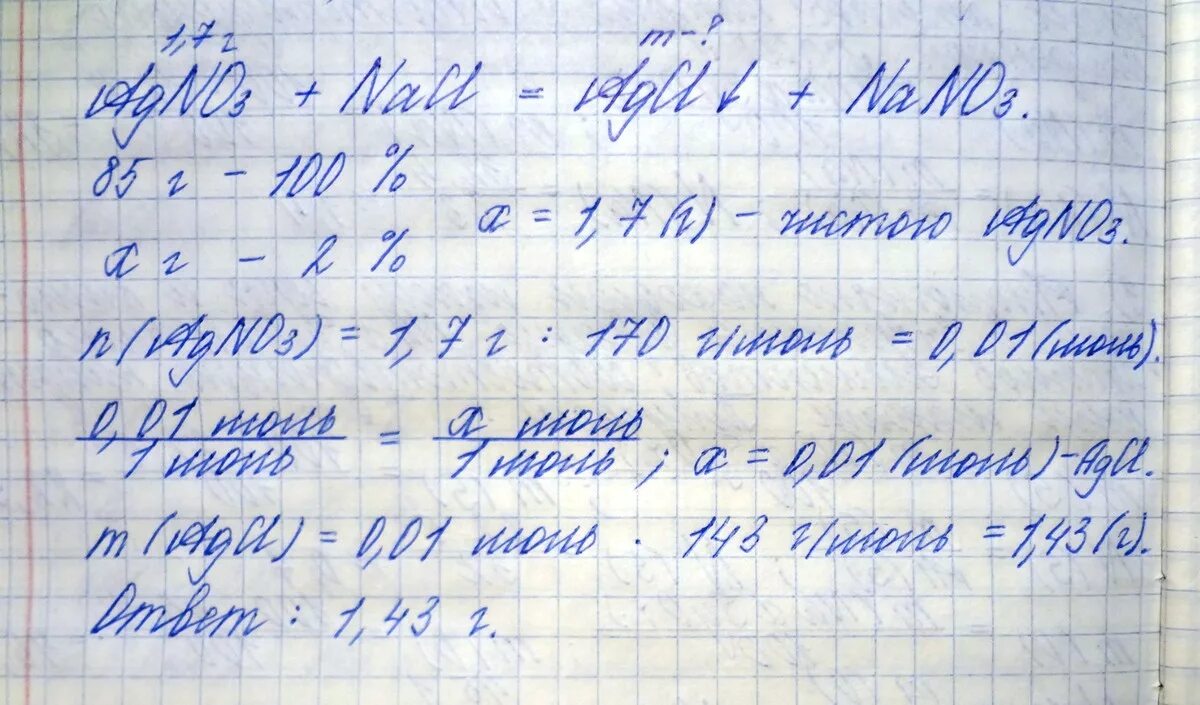 1,7 г m-?
AgNO3 + NaCl = AgCl↓ + NaNO3.
85 г - 100 %
x г - 2 % x = 1,7 (г) - чистого AgNO3.
n (AgNO3) = 1,7 г : 170 г/моль = 0,01 (моль).
0,01 моль / 1 моль = x моль / 1 моль ; x = 0,01 (моль) - AgCl.
m (AgCl) = 0,01 моль · 143 г/моль = 1,43 (г).
Ответ : 1,43 г.